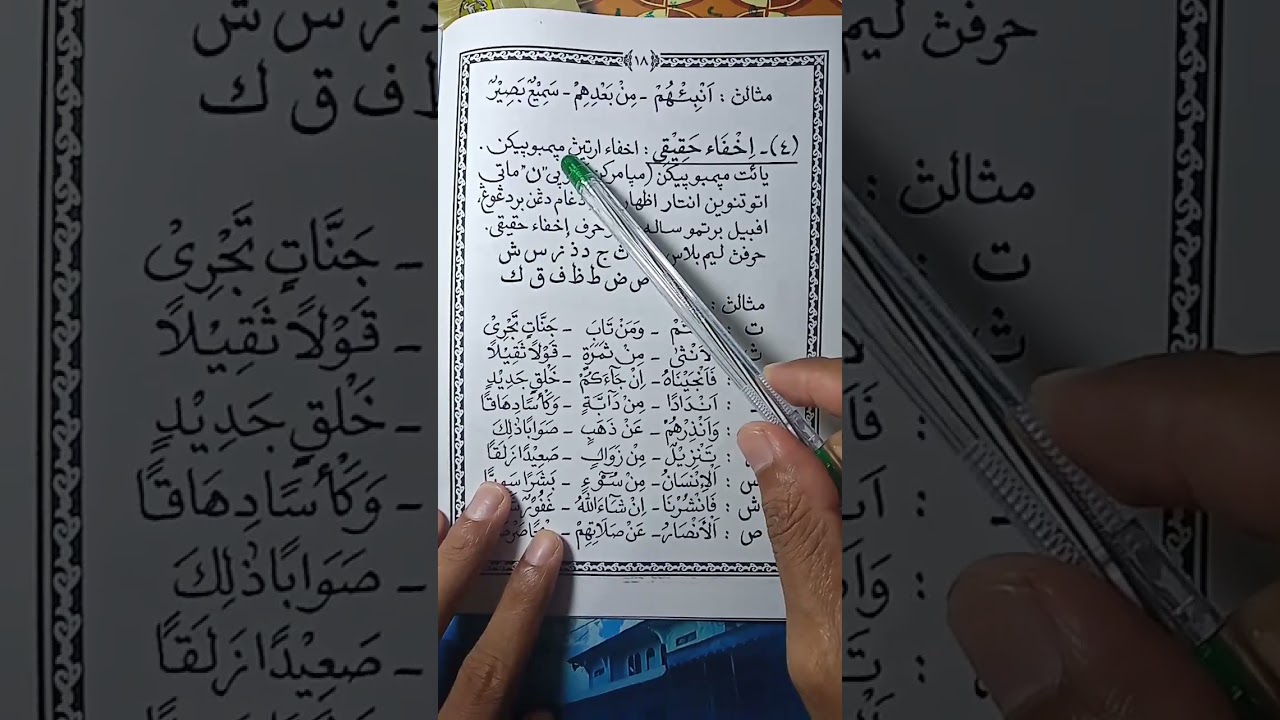 ١٨
مثالڽ : اَنْبِئْهُمْ - مِنْ بَعْدِهِمْ - سَمِيْعٌ بَصِيْرٌ
(٤)ـ إِخْفَاء حَقِيْقِي : اخفاء ارتيڽ مڽمبوڽيكن .
يائت مڽمبوڽيكن (مڽامركن "ن" ماتي
اتوتنوين انتار اظهار دغام دڠن بردڠوڠ،
افبيل برتمو ساله حرف إخفاء حقيقي.
حرفڽ ليم بلاس ث ج د ذ ز س ش
ص ض ط ظ ف ق ك
مثالڽ :
ت : - وَمَنْ تَابَ - جَنَّاتٍ تَجْرِىْ
ث لَأُنْثٰى - مِنْ ثَمَرَةٍ - قَوْلًا ثَقِيْلًا
: فَاَنْجَيْنَاهُ - اِنْ جَآءَكُمْ - خَلْقٍ جَدِيْدٍ
: اَنْدَادًا - مِنْ دَابَّةٍ - وَكَأْسًا دِهَاقًا
: وَاَنْذِرْهُمْ - عَنْ ذَهَبٍ - صَوَابًا ذٰلِكَ
: تَنْزِيْلٌ - مِنْ زَوَالٍ - صَعِيْدًا زَلَقًا
س : اَلْاِنْسَانُ - مِنْ سُوْٓءٍ - بَشَرًا سَوِيًّا
ش : فَاَنْشَرْنَا - اِنْ شَآءَ اللّٰهُ - غَفُوْرٌ
ص : اَلْاَنْصَارُ - عَنْ صَلَاتِهِمْ -